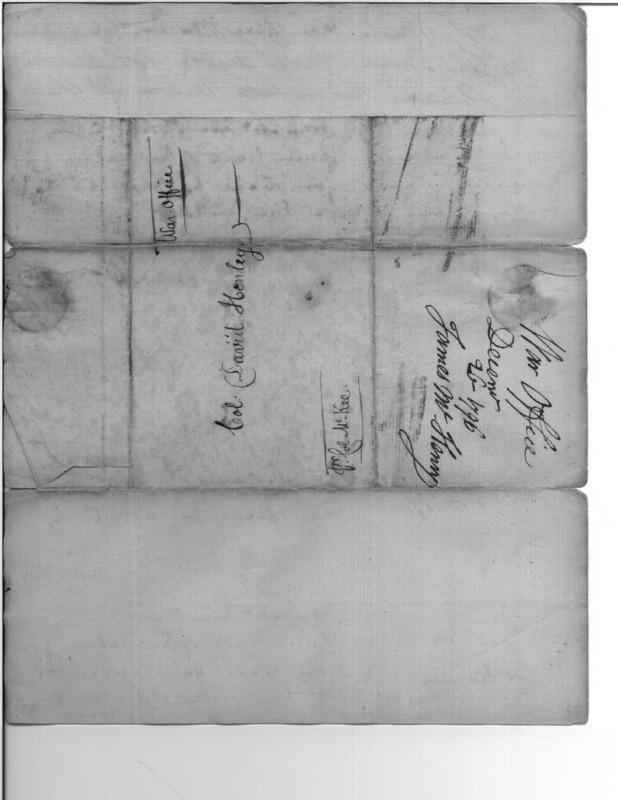 War Office
Col. David Henley
pr. Col McKee.
War Office
Decem
26 1796
James McHenry